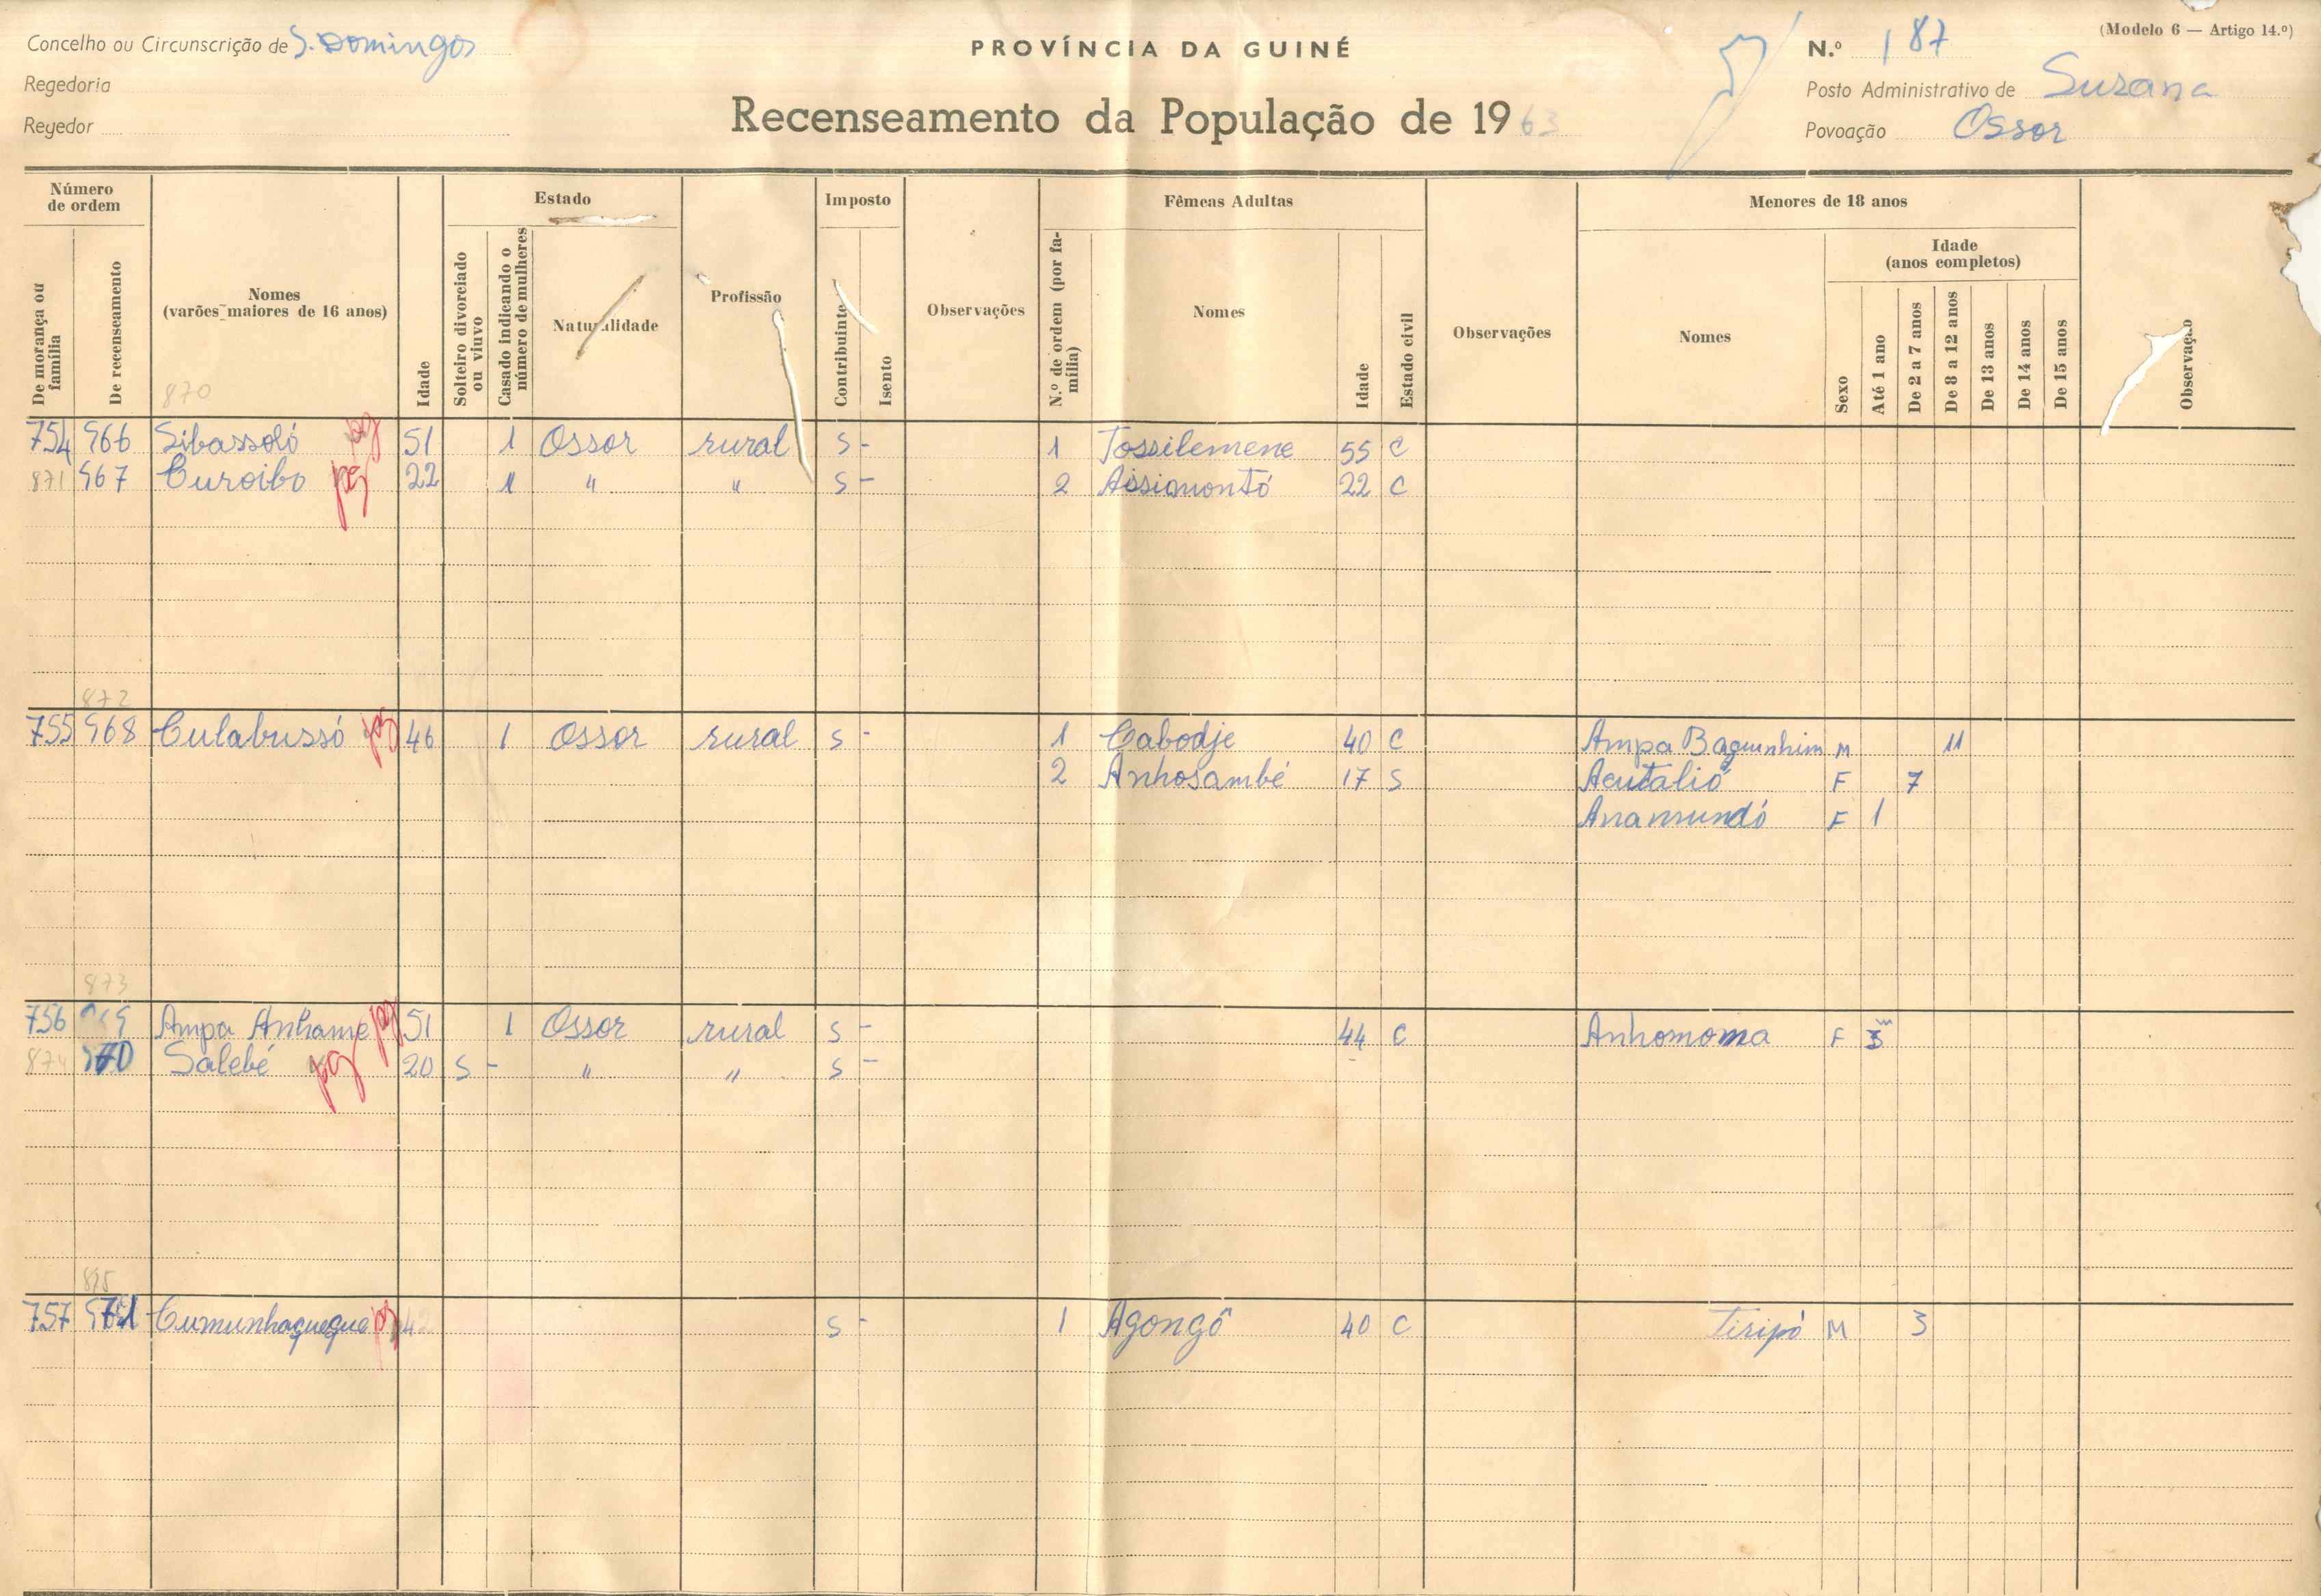 Concelho ou Circunscrição de S. Domingos
Regedoria
Regedor
PROVÍNCIA DA GUINÉ
Recenseamento da População de 1963
(Modelo 6 — Artigo 14.º)
N.º 187
Posto Administrativo de Suzana
Povoação Ossor
Número de ordem
De morança ou família
De recenseamento
Nomes
(varões maiores de 16 anos)
870
Idade
Estado
Solteiro divorciado ou viuvo
Casado indicando o número de mulheres
Naturalidade
Profissão
Imposto
Contribuinte
Isento
Observações
Fêmeas Adultas
N.º de ordem (por família)
Nomes
Idade
Estado civil
Observações
Menores de 18 anos
Nomes
Sexo
Idade
(anos completos)
Até 1 ano
De 2 a 7 anos
De 8 a 12 anos
De 13 anos
De 14 anos
De 15 anos
Observação
754 966 Sibassoló pg 51 1 Ossor rural S - 1 Tossilemene 55 C
871 967 Curoibo pg 22 1 " " S - 2 Assimontó 22 C
872
755 968 Culabussó pg 46 1 Ossor rural S - 1 Cabodje 40 C Ampa Bagunhim M 11
2 Anhosambé 17 S Acutalió F 7
Anamundó F 1
873
756 Ampa Anhame pg 51 1 Ossor rural S - 44 C Anhomoma F 3 m
874 970 Salebé pg 20 S - " " S -
875
757 971 Cumunhaqueque pg 42 S - 1 Agongô 40 C Tiripó M 3